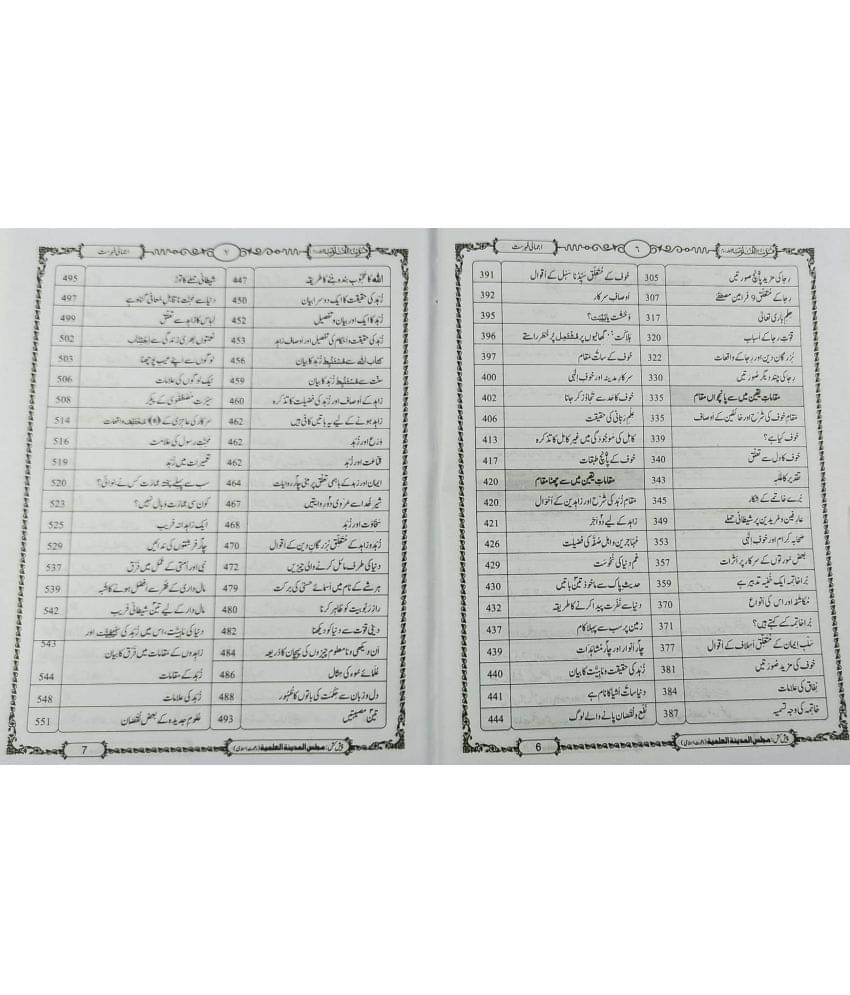 اجمالی فہرست
٦
رجا کی مزید پانچ صورتیں 305
رجا کے متعلق 9 فرامین مصطفےٰ 307
حلم باری تعالیٰ 317
قوتِ رجا کے اسباب 320
بزرگانِ دین اور رجا کے واقعات 322
رجا کی چند دیگر صورتیں 330
مقامات یقین میں سے پانچواں مقام 335
مقام خوف کی شرح اور خائفین کے اوصاف 335
خوف کیا ہے؟ 339
خوف کا دل سے تعلق 340
تقدیر کا غلبہ 343
بُرے خاتمے کے افکار 345
عارفین و مریدین پر شیطانی حملے 349
صحابہ کرام اور خوف الٰہی 353
بعض سورتوں کے سرکار پر اثرات 357
بُرا خاتمہ ایک خفیہ تدبیر ہے 359
مکاشفہ اور اس کی انواع 370
بُرا خاتمہ کسے کہتے ہیں؟ 371
سلب ایمان کے متعلق اسلاف کے اقوال 377
خوف کی مزید صورتیں 381
نفاق کی علامات 384
خاتمہ کی وجہ تسمیہ 387
خوف کے متعلق سیدنا سہل کے اقوال 391
اوصاف سرکار 392
وحشت یا ہیبت؟ 395
ہلاکت: گھاٹیوں پر مشتمل پُر خطر راستے 396
خوف کے سات مقام 397
سرکار مدینہ اور خوف الٰہی 400
خوف کا حد سے تجاوز کر جانا 402
علم ربانی کی حقیقت 406
کامل کی موجودگی میں غیر کامل کا تذکرہ 413
خوف کے پانچ طبقات 417
مقامات یقین میں سے چھٹا مقام 420
مقام زہد کی شرح اور زاہدین کے احوال 420
زاہد کے لیے دو اجر 421
مہاجرین و اہل صفہ کی فضیلت 426
غم دنیا کی نحوست 429
حدیث پاک سے ماخوذ تین باتیں 430
دنیا سے نفرت پیدا کرنے کا طریقہ 432
زمین پر سب سے پہلا کام 437
چار انوار اور چار مشاہدات 439
زہد کی حقیقت و ماہیت کا بیان 440
دنیا سات اشیا کا نام ہے 441
نفع و نقصان پانے والے لوگ 444
پیش کش: مجلس المدینۃ العلمیۃ (دعوت اسلامی)
6
اجمالی فہرست
٧
اللہ کا محبوب بندہ بننے کا طریقہ 447
زہد کی حقیقت کا ایک دوسرا بیان 450
زہد کا ایک اور بیان و تفصیل 452
زہد کی حقیقت و احکام کی تفصیل اور اوصاف زاہد 453
کتاب اللہ سے مستنبط زہد کا بیان 456
سنت سے مستنبط زہد کا بیان 459
زاہد کے اوصاف اور زہد کی فضیلت کا تذکرہ 460
زاہد ہونے کے لیے یہ باتیں کافی ہیں 462
ورع اور زہد 462
قناعت اور زہد 462
ایمان اور زہد کے باہمی تعلق پر مبنی چار روایات 464
شیر خدا سے مروی دو روایتیں 467
سخاوت اور زہد 468
زہد و زاہد کے متعلق بزرگان دین کے اقوال 470
دنیا کی طرف مائل کرنے والی چیزیں 472
ہر شے کے نام میں اسمائے حسنیٰ کی برکت 479
راز ربوبیت کو ظاہر کرنا 480
دینی قوت سے دنیا کو دیکھنا 482
اَن دیکھی و نامعلوم چیزوں کی پہچان کا ذریعہ 484
علمائے سوء کی مثال 486
دل و زبان سے حکمت کی باتوں کا ظہور 488
تین مصیبتیں 493
شیطانی حملے کا توڑ 495
دنیا سے محبت ناقابل معافی گناہ ہے 497
لباس کا زہد سے تعلق 499
نعمتوں بھری زندگی سے اجتناب 502
لوگوں سے اپنے عیب پوچھنا 503
نیک لوگوں کی علامات 506
سیرت مصطفوی کے پیکر 508
سرکار کی عاجزی کے ﴿٥﴾ مختلف واقعات 514
محبت رسول کی علامت 516
تعمیرات میں زہد 519
سب سے پہلے پختہ عمارت کس نے بنوائی؟ 520
کون سی عمارت وبال نہیں؟ 523
ایک زاہدانہ فریب 525
چار فرشتوں کی ندائیں 529
نبی اور امتی کے عمل میں فرق 537
مال داری کے فقر سے افضل ہونے کا شبہ 539
مال دار کے لیے تین شیطانی فریب 542
دنیا کی ماہیت، اس میں زہد کی کیفیت اور 543
زاہدوں کے مقامات میں فرق کا بیان
زہد کے مقامات 544
زہد کی علامات 548
علوم جدیدہ کے بعض نقصان 551
پیش کش: مجلس المدینۃ العلمیۃ (دعوت اسلامی)
7